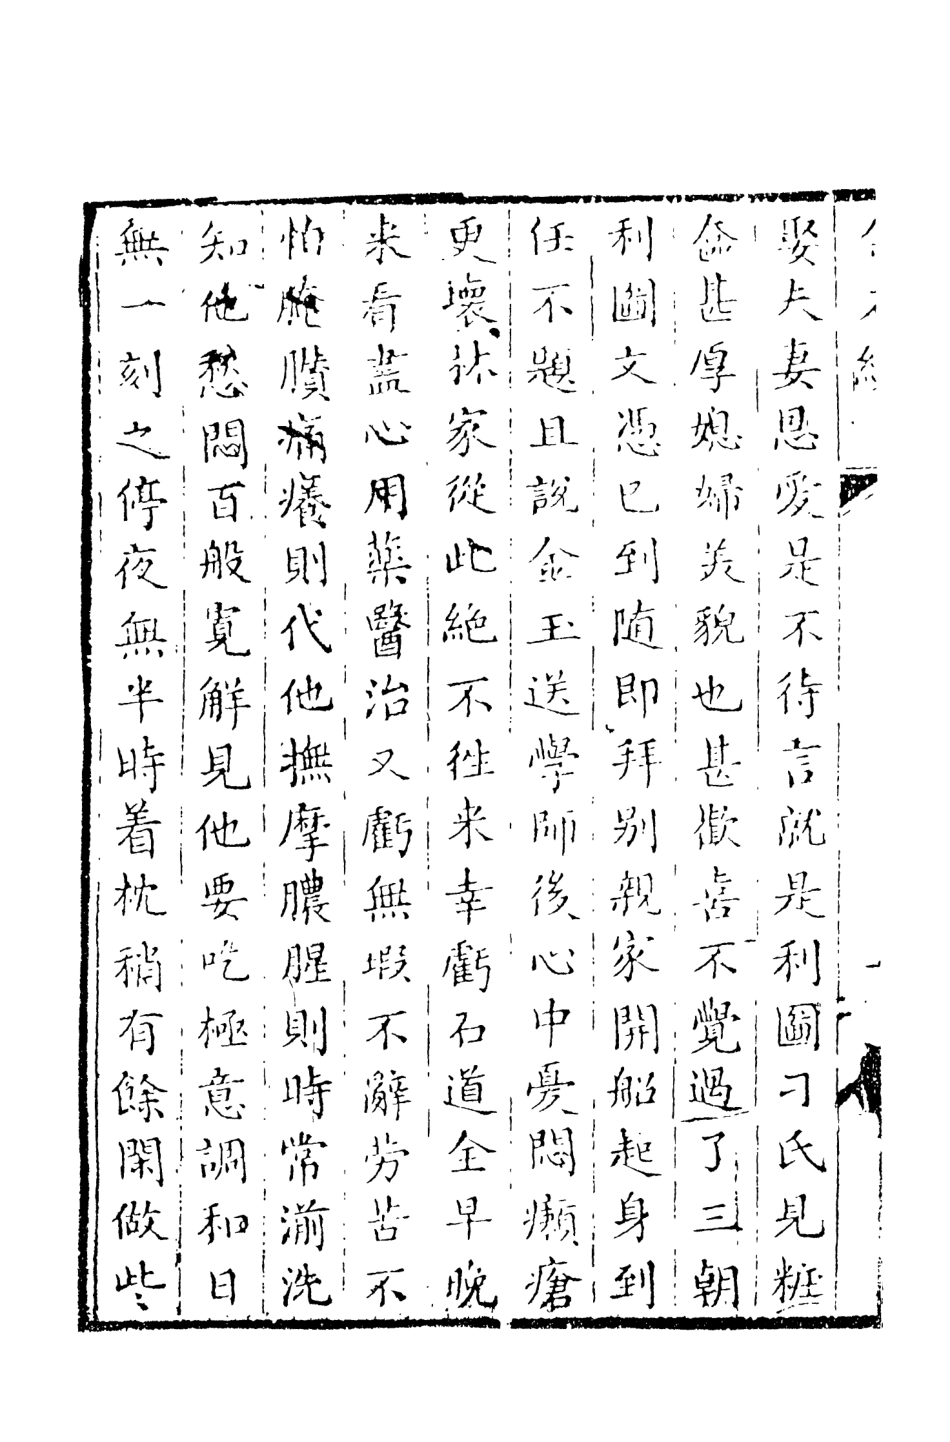 娶夫妻恩愛是不待言就是利圖刁氏見粧
奩甚厚媳婦美貌也甚歡喜不覺過了三朝
利圖文憑已到随即拜别親家開船起身到
任不題且說金玉送學師後心中憂悶癩瘡
更壞林家從此絶不徃来幸虧石道全早晚
来看盖心用藥醫治又虧無瑕不辭劳苦不
怕腌臢痛癢則代他撫摩膿腥則時常湔洗
知他愁悶百般寛解見他要吃極意調和日
無一刻之停夜無半時着枕稍有餘閑做些